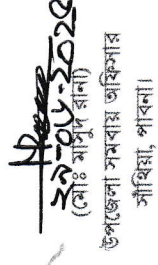 ২৯-০৮-২০২৫
(মোঃ মাসুদ রানা)
উপজেলা সমবায় অফিসার
সাঁথিয়া, পাবনা।